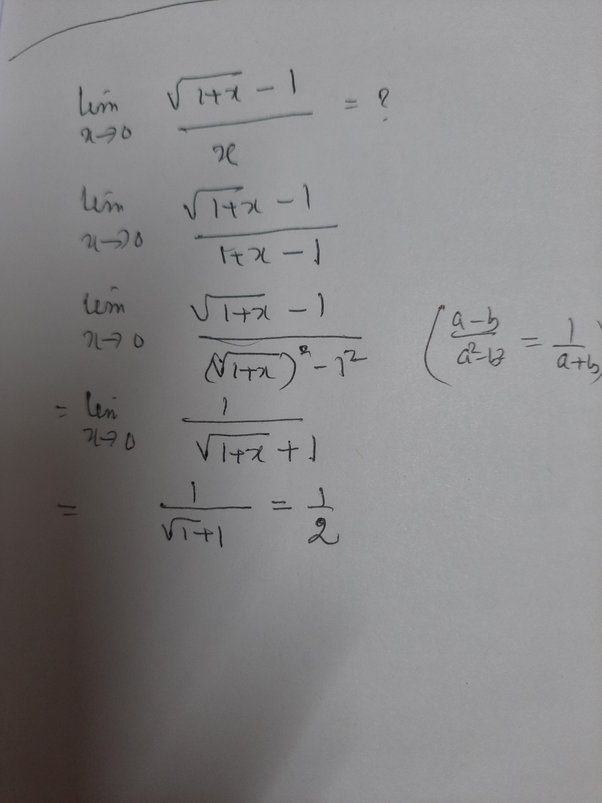 lim x→0 (√(1+x) - 1)/x = ?
lim x→0 (√(1+x) - 1)/(1+x - 1)
lim x→0 (√(1+x) - 1)/((√(1+x))² - 1²) ((a-b)/(a²-b²) = 1/(a+b))
= lim x→0 1/(√(1+x) + 1)
= 1/(√1+1) = 1/2